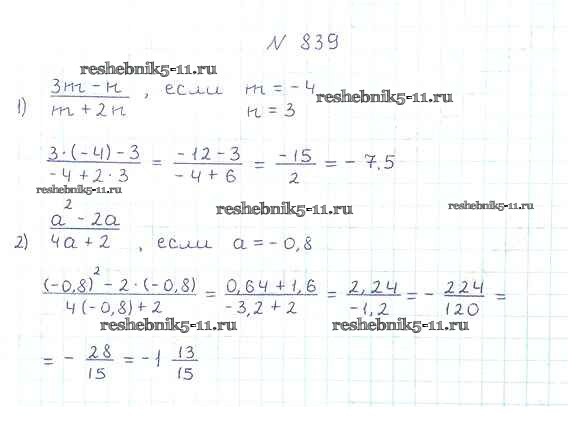 N 839
reshebnik5-11.ru
1) (3m - n)/(m + 2n), если m = -4
n = 3
reshebnik5-11.ru
(3·(-4) - 3)/(-4 + 2·3) = (-12 - 3)/(-4 + 6) = (-15)/2 = - 7.5
reshebnik5-11.ru
reshebnik5-11.ru
reshebnik5-11.ru
2) (a² - 2a)/(4a + 2), если a = - 0,8
((-0,8)² - 2·(-0,8))/(4(-0,8) + 2) = (0,64 + 1,6)/(-3,2 + 2) = (2,24)/(-1,2) = - 224/120 =
reshebnik5-11.ru
reshebnik5-11.ru
= - 28/15 = -1 13/15